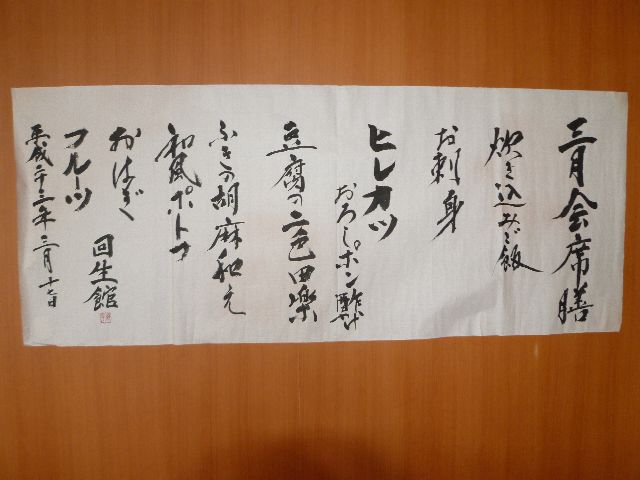 三月会席膳
炊き込みご飯
お刺身
ヒレカツ
おろしポン酢
豆腐の二色田楽
ふきの胡麻和え
和風ポトフ
おはぎ
フルーツ
回生館
平成二十三年三月十七日